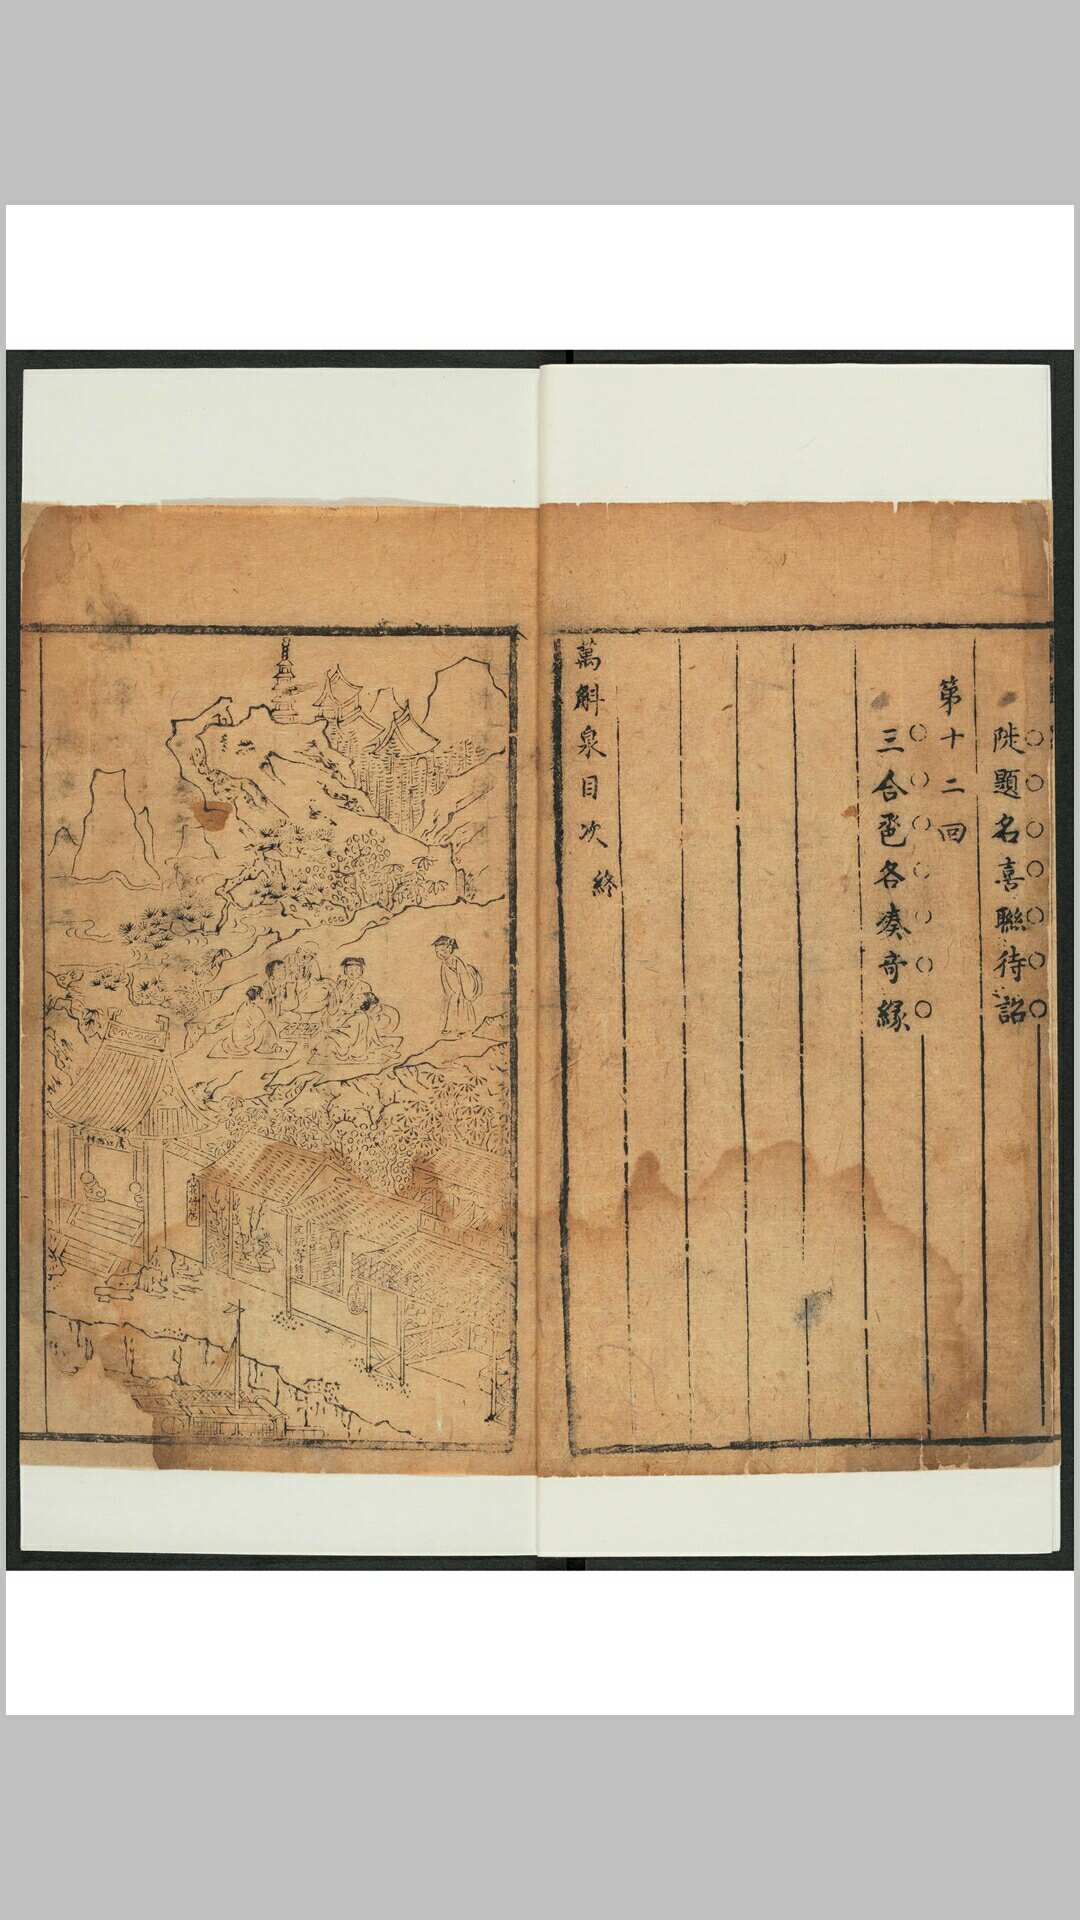 陡題名喜聯待詔
第十二回
三合巹各奏奇緣
萬斛泉目次終